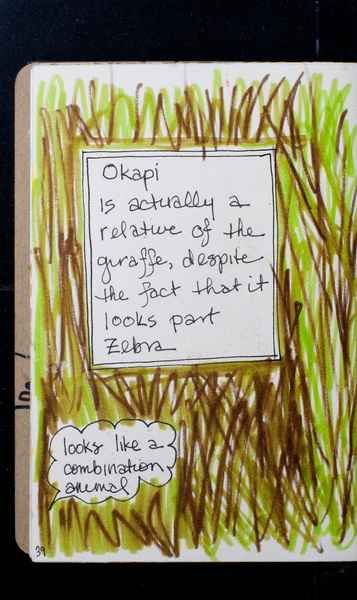 Okapi
is actually a
relative of the
giraffe, despite
the fact that it
looks part
Zebra
looks like a
combination
animal
39